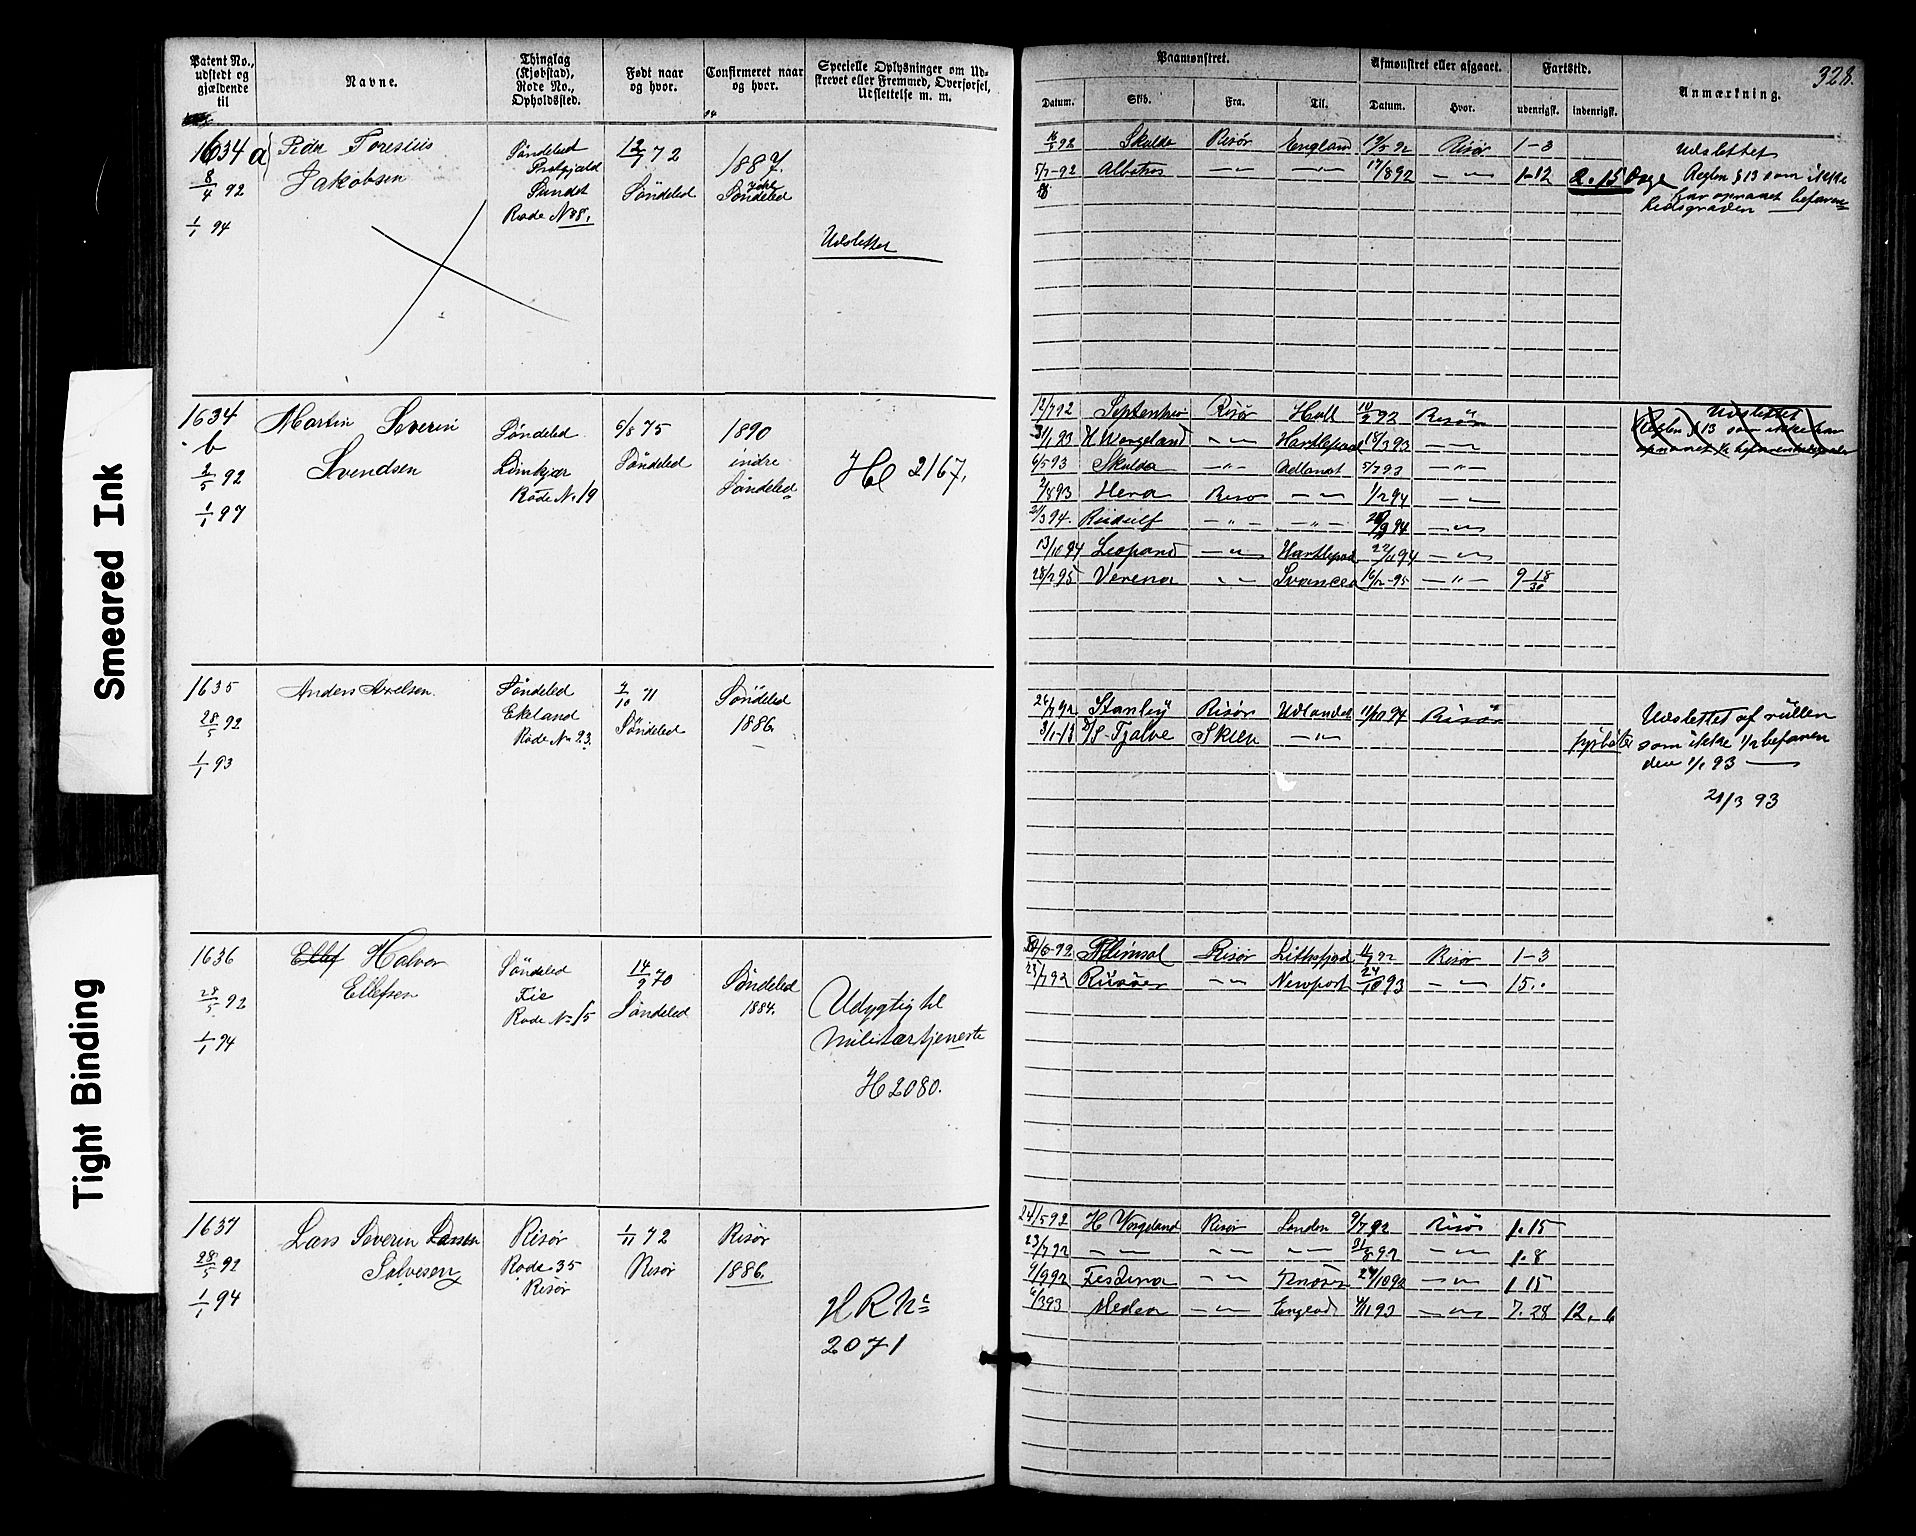 Smeared Ink
Tight Binding
Patent No., udstedt og gjældende til
Navne.
Thinglag (Kjøbstad), Rode No., Opholdssted.
Født naar og hvor.
Confirmeret naar og hvor.
Specielle Oplysninger om Udskrevet eller Fremmed, Overførsel, Udslettelse m. m.
Paamønstret.
Afmønstret eller afgaaet.
Fartstid.
Anmærkning.
328.
Datum.
Skib.
Fra.
Til.
Datum.
Hvor.
udenrigsk.
indenrigsk.
1634 a
8/4 92
1/1 94
Jakobsen
Søndeled
Sundet
Rode No 8.
12/7 72
Søndeled
1887.
Søndeled
Udslettet
16/5 92 Skulda Risør England 19/5 92 Risør 1-3
5/7-92 Albatros — " — — " — 17/8 92 — " — 1-12 2. 15 Dage
Udslettet
Reglm § 13 som ikke
har opnaaet befaren-
hedsgraden —
1634
b
2/5 92
1/1 97
Martin Severin
Svendsen
Søndeled
Rode No 19
6/8 75
Søndeled
1890
indre
Søndeled
Hl 2167.
12/7 92 September Risør Hull 10/9 92 Risør
3/1 93 H Wergeland — " — Hartlepool 18/3 93 — " —
6/5 93 Skulda — " — Adlandet 5/7 93 — " —
2/8 93 Hera Risø — " — 1/2 94 — " —
21/3 94. Rudolf — " — — " — 28/9 94 — " —
13/10 94 Leopard — " — Hartlepool 22/11 94 — " —
28/2 95 Verena — " — Svansea 16/12-95 — " — 9 18/30
Udslettet
Reglm § 13 som ikke har
opnaaet 1/2 befarenhedsgrader
1635
28/5 92
1/1 93
Anders Axelsen.
Søndeled
Ekeland
Rode No 23.
4/10 71
Søndeled
Søndeled
1886.
26/7 92 Stanley Risør Udlandet 11/10 94 Risør
3/1-13 D/S Tjalve Skien — " — fyrbøter
Udslettet af rullen
som ikke 1/2 befaren
den 1/1 93 —
21/3 93
1636
28/5 92
1/1 94
Ellef Halvor
Ellefsen
Søndeled
Fie
Rode No 15
14/9 70
Søndeled
Søndeled
1884.
Udygtig til
militærtjeneste
H 2080.
Risør Risør 1-3
25/7 92 — " — Newport 24/10 93 — " — 15..
1637
28/5 92
1/1 94
Lars Severin Larsen
Salvesen
Risør
Rode 35
Risør
1/11 72
Risør
Risør
1886.
H R No
2071
24/5 92 H Vergeland Risør London 9/7 92 Risør 1.15
23/7 92 — " — — " — — " — 31/8 92 — " — 1.8
9/9 92 Festina — " — 24/10 92 — " — 1.15
6/3 93 Medea — " — England 4/11 93 — " — 7.28 12. 6